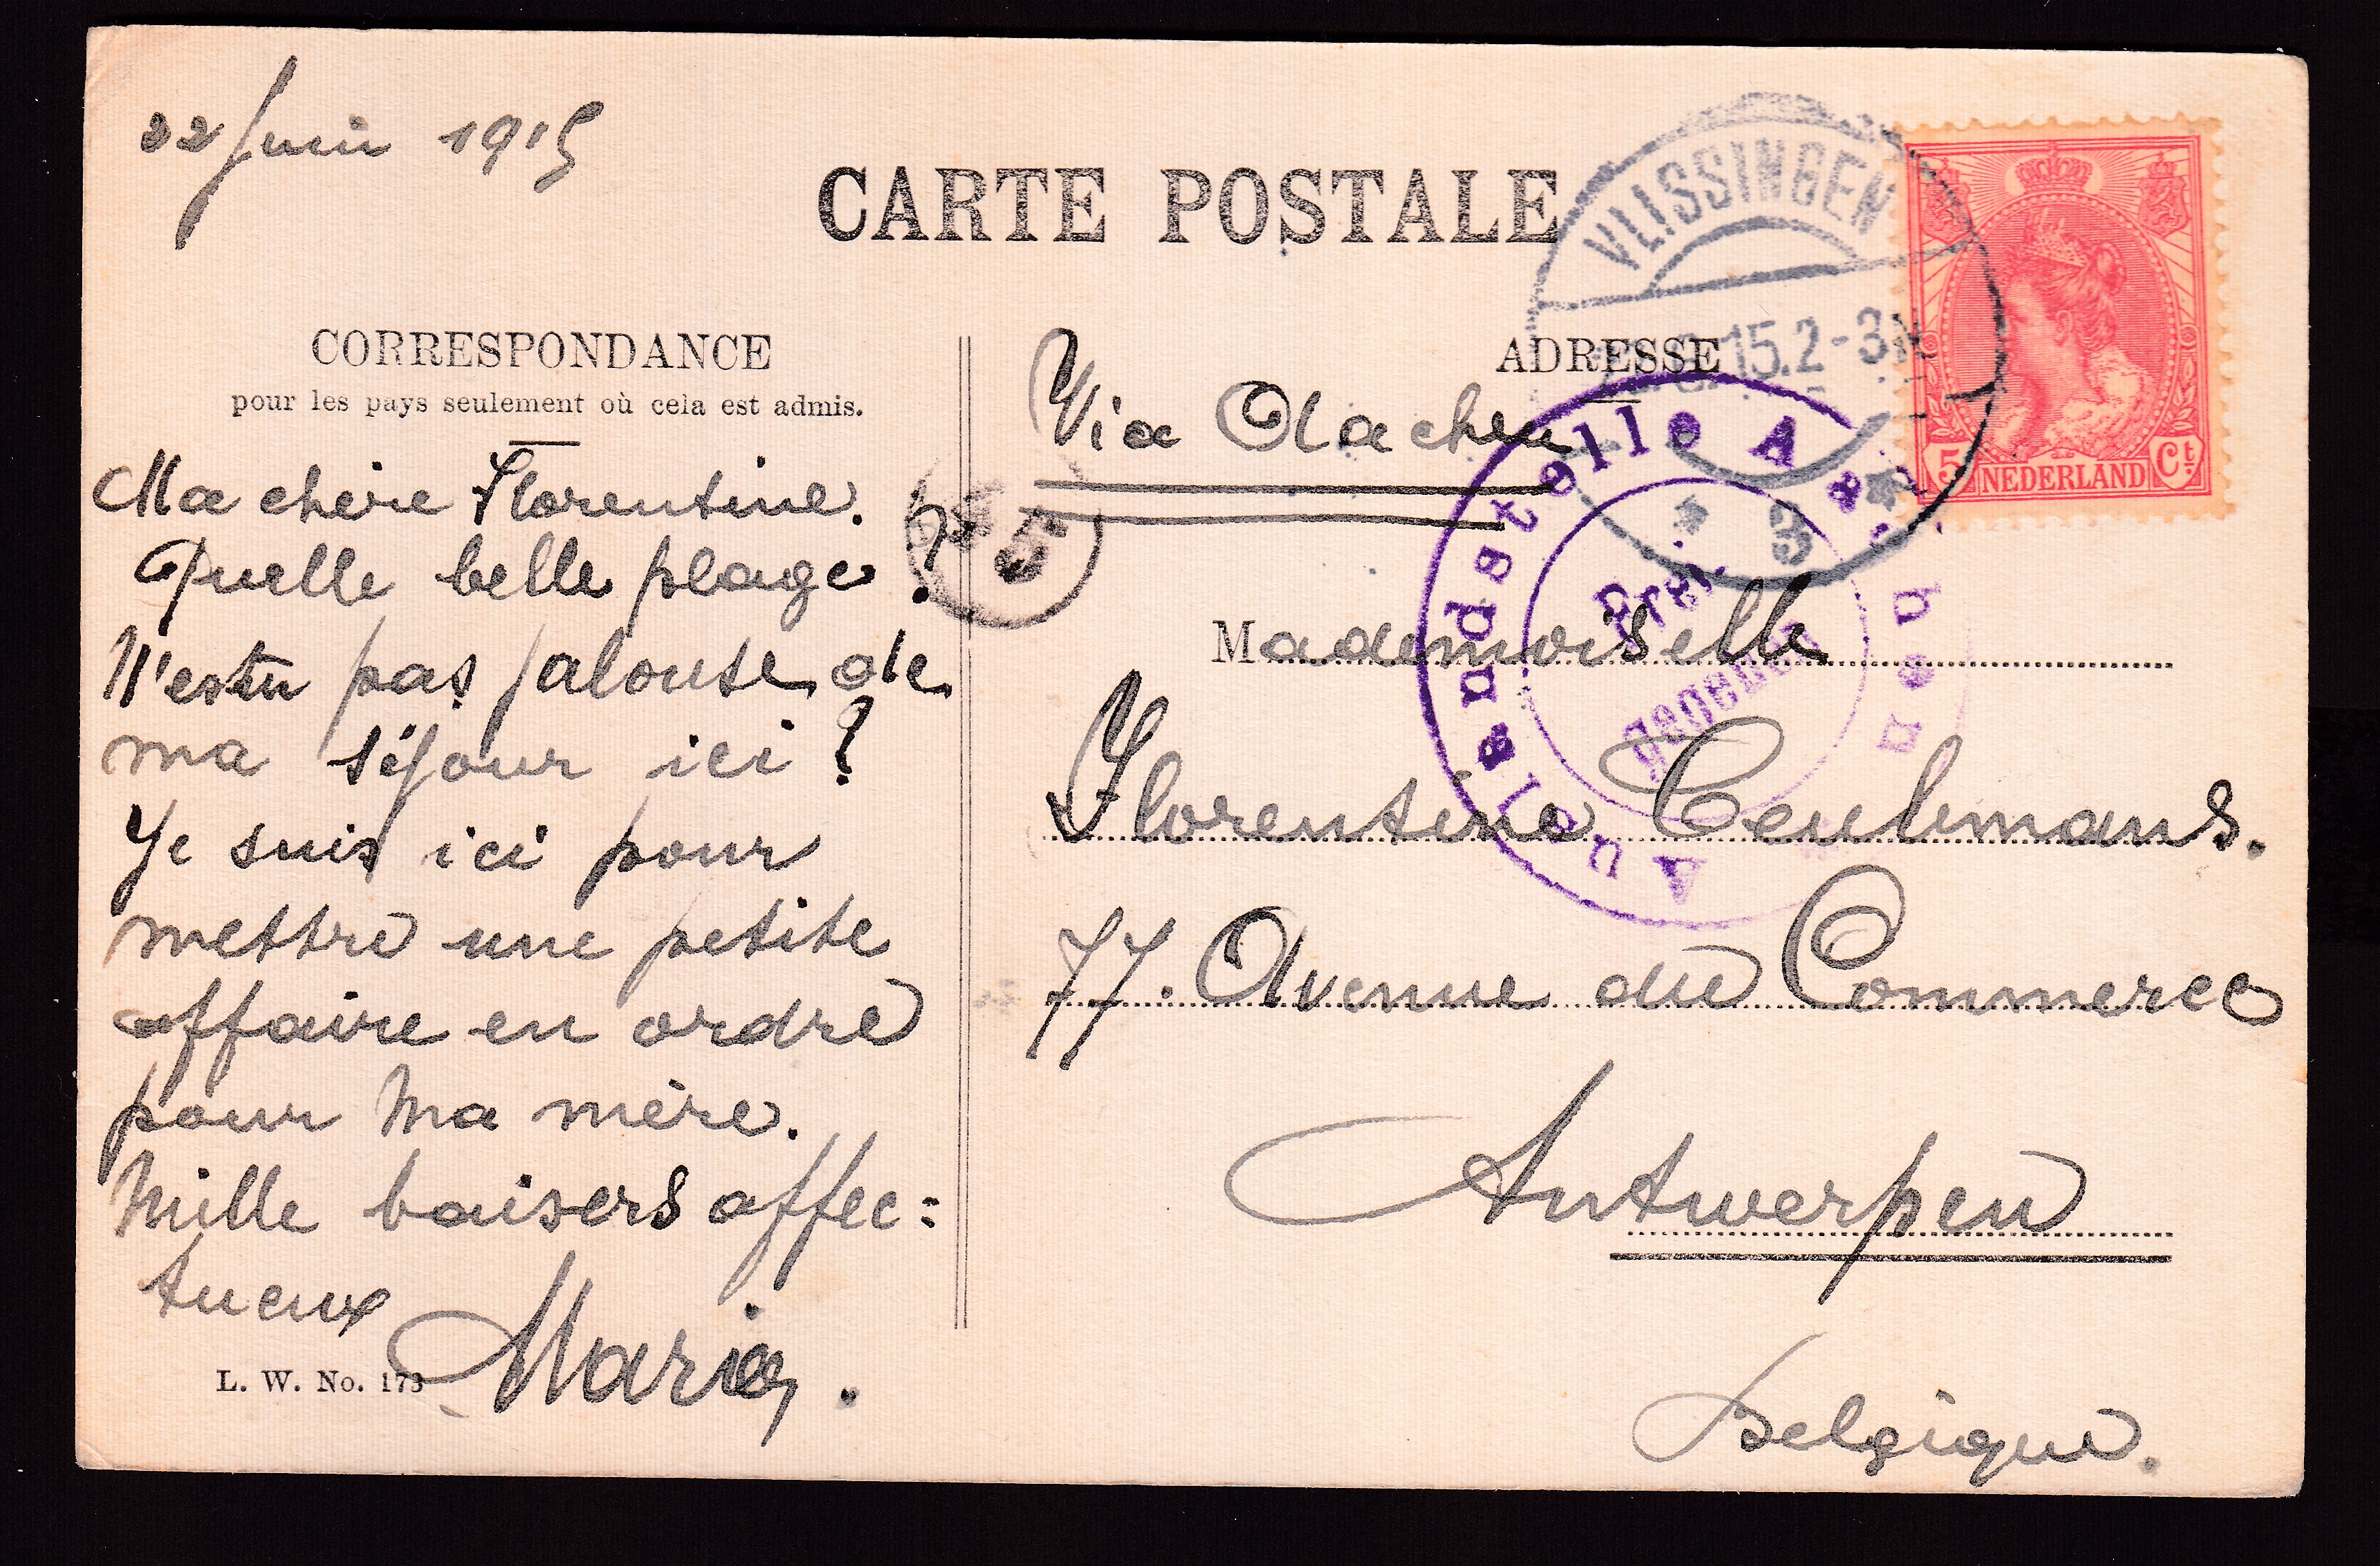 22 Juin 1915
CARTE POSTALE
CORRESPONDANCE
pour les pays seulement où cela est admis.
Ma chère Florentine.
Quelle belle plage?
N'estu pas jalouse de
ma séjour ici?
Je suis ici pour
mettre une petite
affaire en ordre
pour Ma mère.
Mille baisers affec=
tueux
Maria.
L. W. No. 173
ADRESSE
Via Aachen
Mademoiselle
Florentine Ceulemans.
77. Avenue du Commerce
Antwerpen
Belgique.
VLISSINGEN
15.2-3N
3
Auslandstelle Aachen
Frei-
gegeben
5 NEDERLAND Ct.